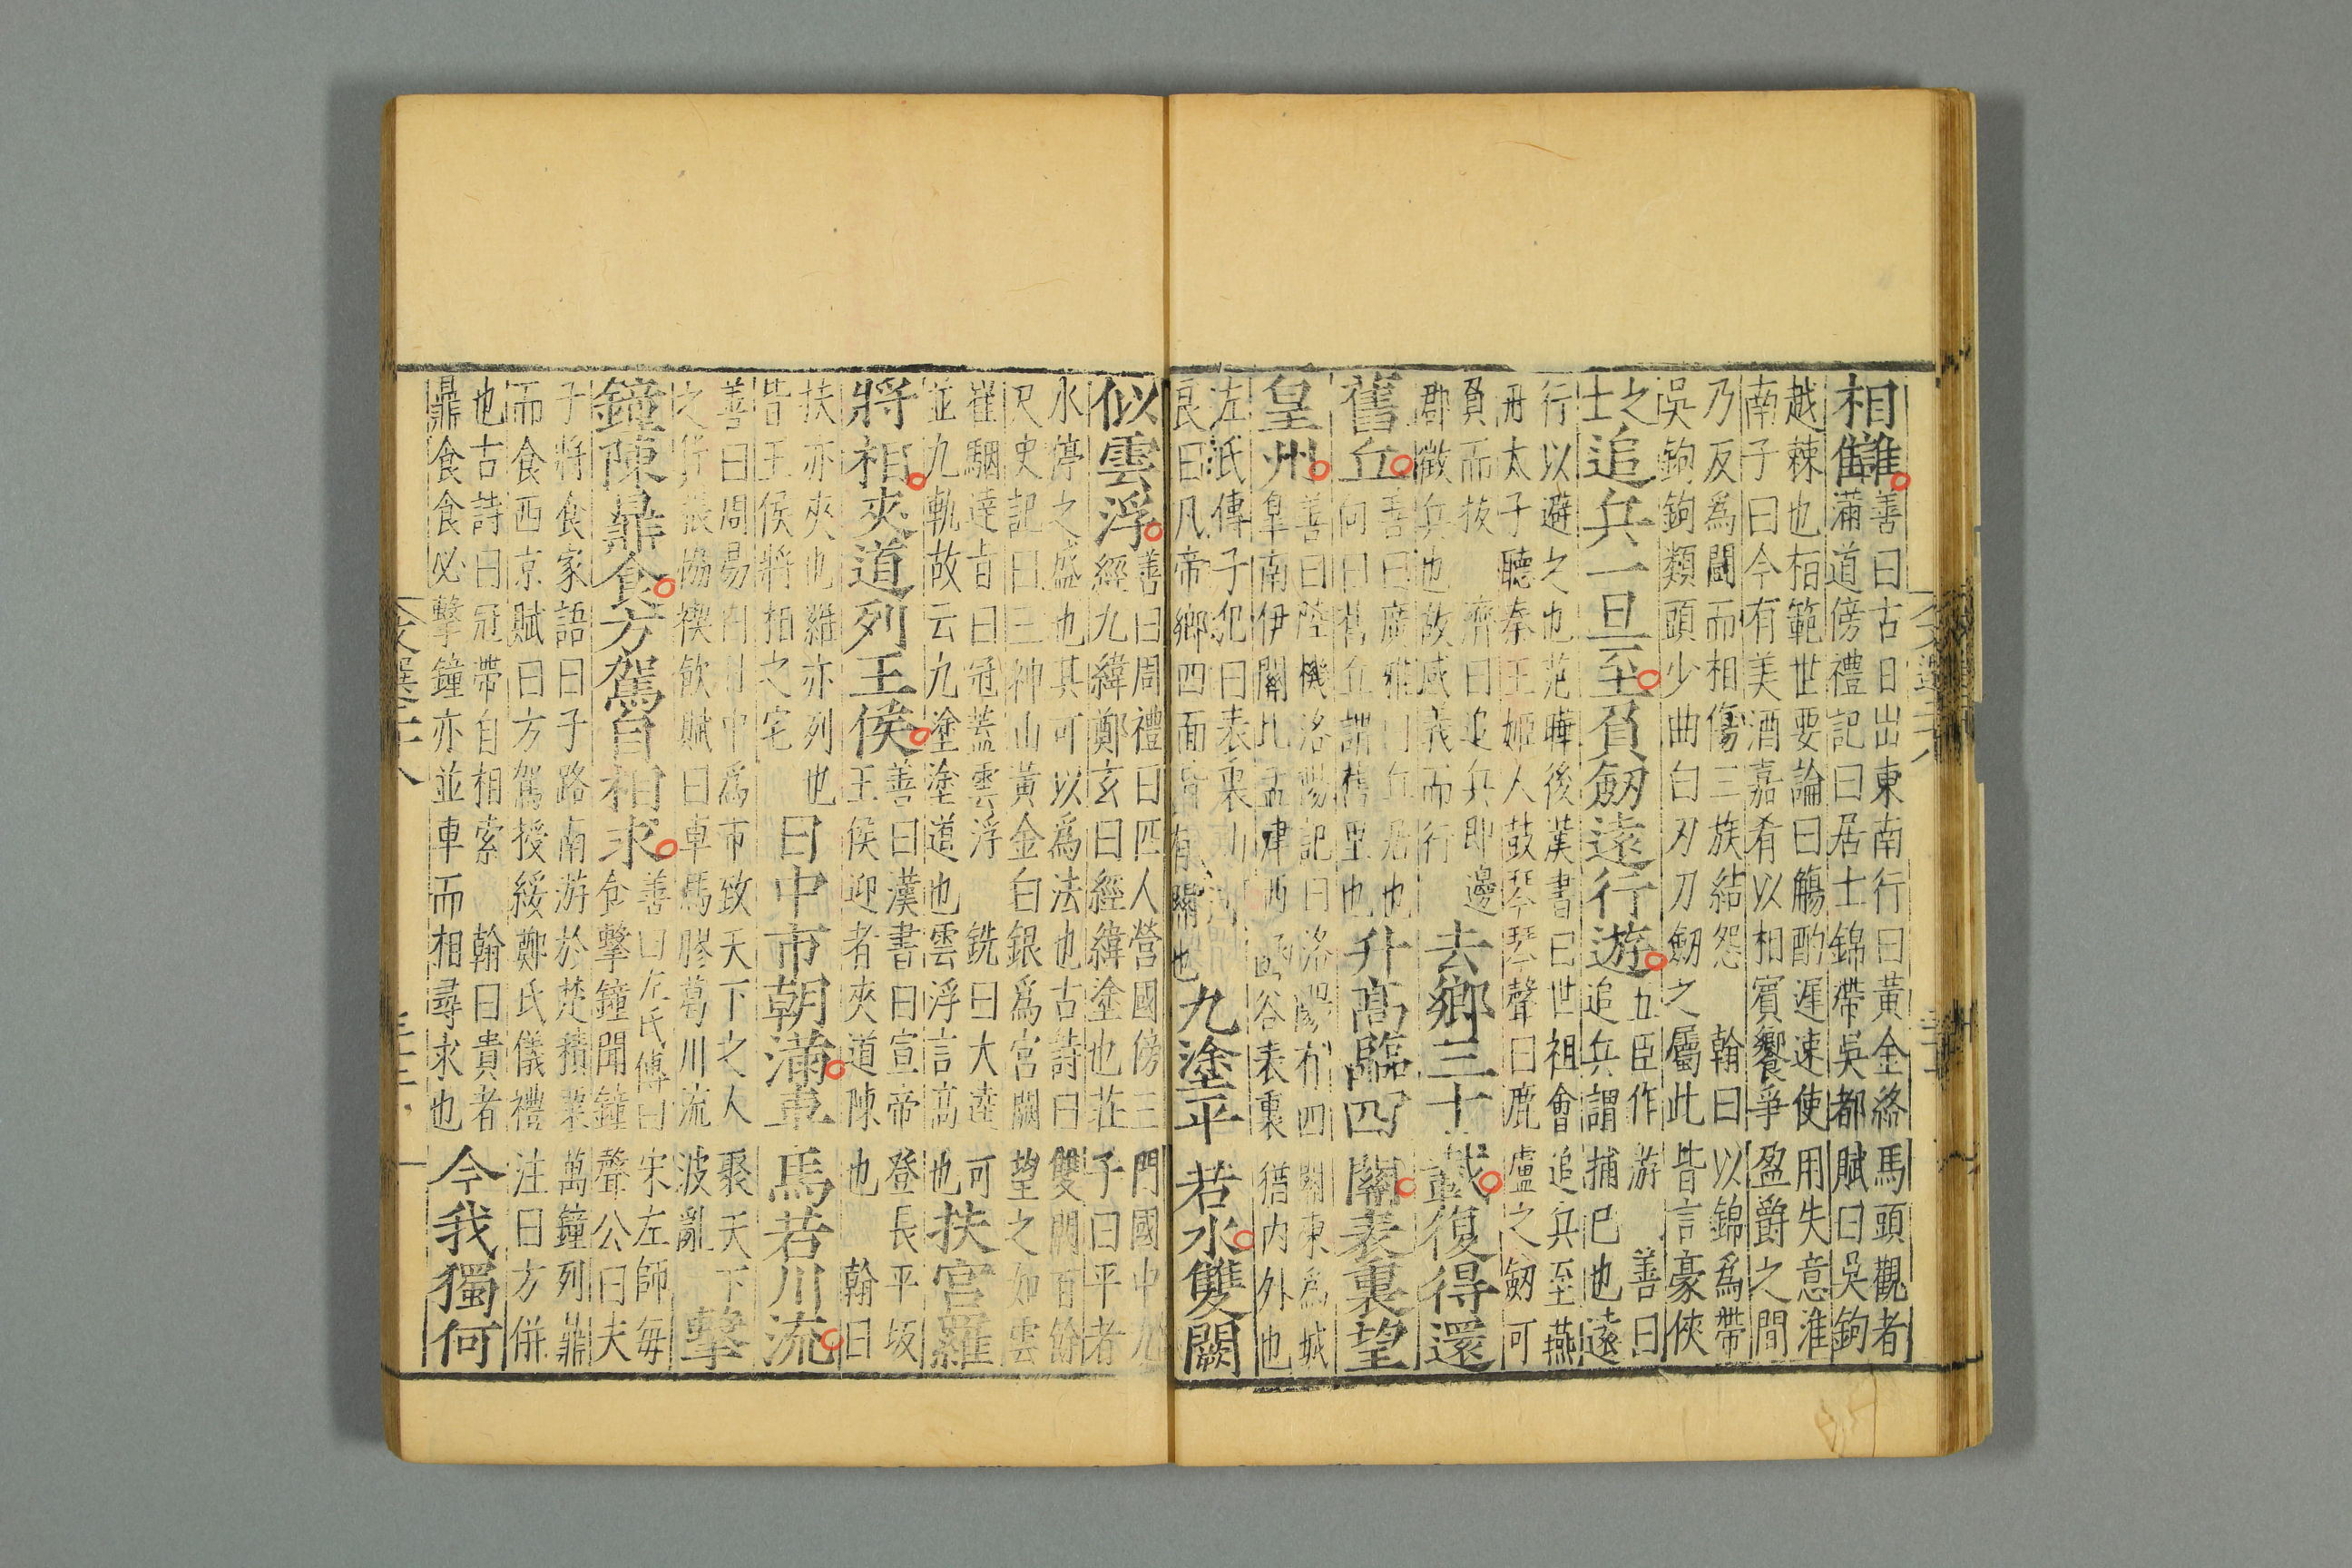 相讎善曰古日出東南行曰黃金絡馬頭觀者
滿道傍禮記曰居士錦帶吳都賦曰吳鉤
越棘也栢範世要論曰觴酌遲速使用失意淮
南子曰今有美酒嘉肴以相賓饗爭盈爵之間
乃反爲鬬而相傷三族結怨 翰曰以錦爲帶
吳鉤鉤類頭少曲白刃刀劒之屬此皆言豪俠
之
士追兵一旦至負劒遠行遊五臣作游 善曰
追兵謂捕巳也遠
行以避之也范曄後漢書曰世祖會追兵至燕
丹太子聽秦王姬人鼓琴琴聲曰鹿盧之劒可
負而拔 濟曰追兵即邊
郡徵兵也故感義而行 去鄉三十載復得還
舊丘善曰廣雅曰丘居也
向曰舊丘謂舊里也升髙臨四關表裏望
皇州善曰陸機洛陽記曰洛陽有四關東爲城
皐南伊闕北孟津西函谷表裏猶内外也
左氏傳子犯曰表裏山河
良曰凡帝鄉四面皆有關也九塗平若水雙闕
似雲浮善曰周禮曰匠人營國傍三門國中九
經九緯鄭玄曰經緯塗也莊子曰平者
水停之盛也其可以爲法也古詩曰雙闕百餘
尺史記曰三神山黃金白銀爲宮闕望之如雲
崔駰達旨曰冠蓋雲浮 銑曰大逵可
並九軌故云九塗塗道也雲浮言髙也扶宮羅
將相夾道列王侯善曰漢書曰宣帝登長平坂
王侯迎者夾道陳也 翰曰
扶亦夾也羅亦列也
皆王侯將相之宅 日中市朝滿車馬若川流
善曰周易曰日中爲市致天下之人聚天下
之貨張協禊飲賦曰車馬膠葛川流波亂 擊
鐘陳鼎食方駕自相求善曰左氏傳曰宋左師每
食擊鐘聞鐘聲公曰夫
子將食家語曰子路南游於楚積粟萬鐘列鼎
而食西京賦曰方駕授綏鄭氏儀禮注曰方併
也古詩曰冠帶自相索 翰曰貴者
鼎食食必擊鐘亦並車而相尋求也今我獨何
文選二十八
三十二